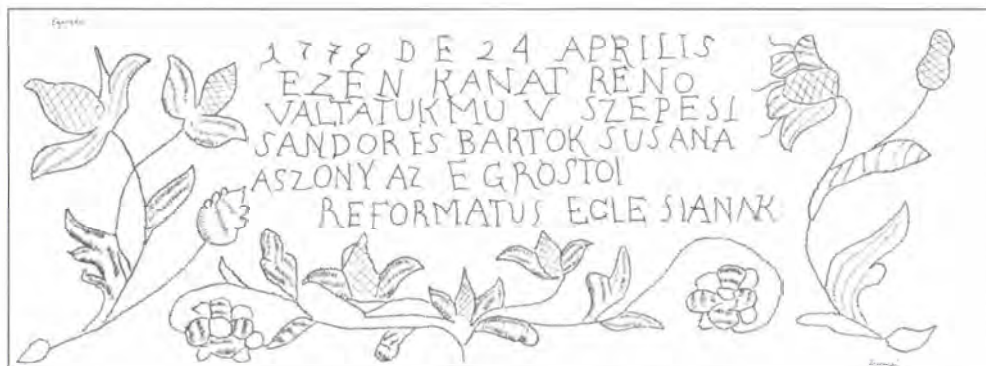 1779 D E 24 APRILIS
EZEN KANAT RENO
VALTATUK MU V SZEPESI
SANDOR ES BARTOK SUSANA
ASZONY AZ EGROSTOI
REFORMATUS EGLESIANAK